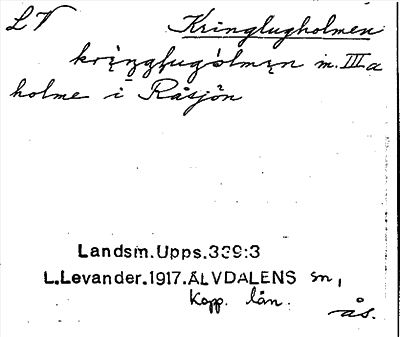 LV Kringlugholmen
krı̨ŋglugólmųn m. III a
holme i Råsjön
Landsm.Upps.339:3
L.Levander.1917.ÄLVDALENS sn,
Kopp. län.
ås.